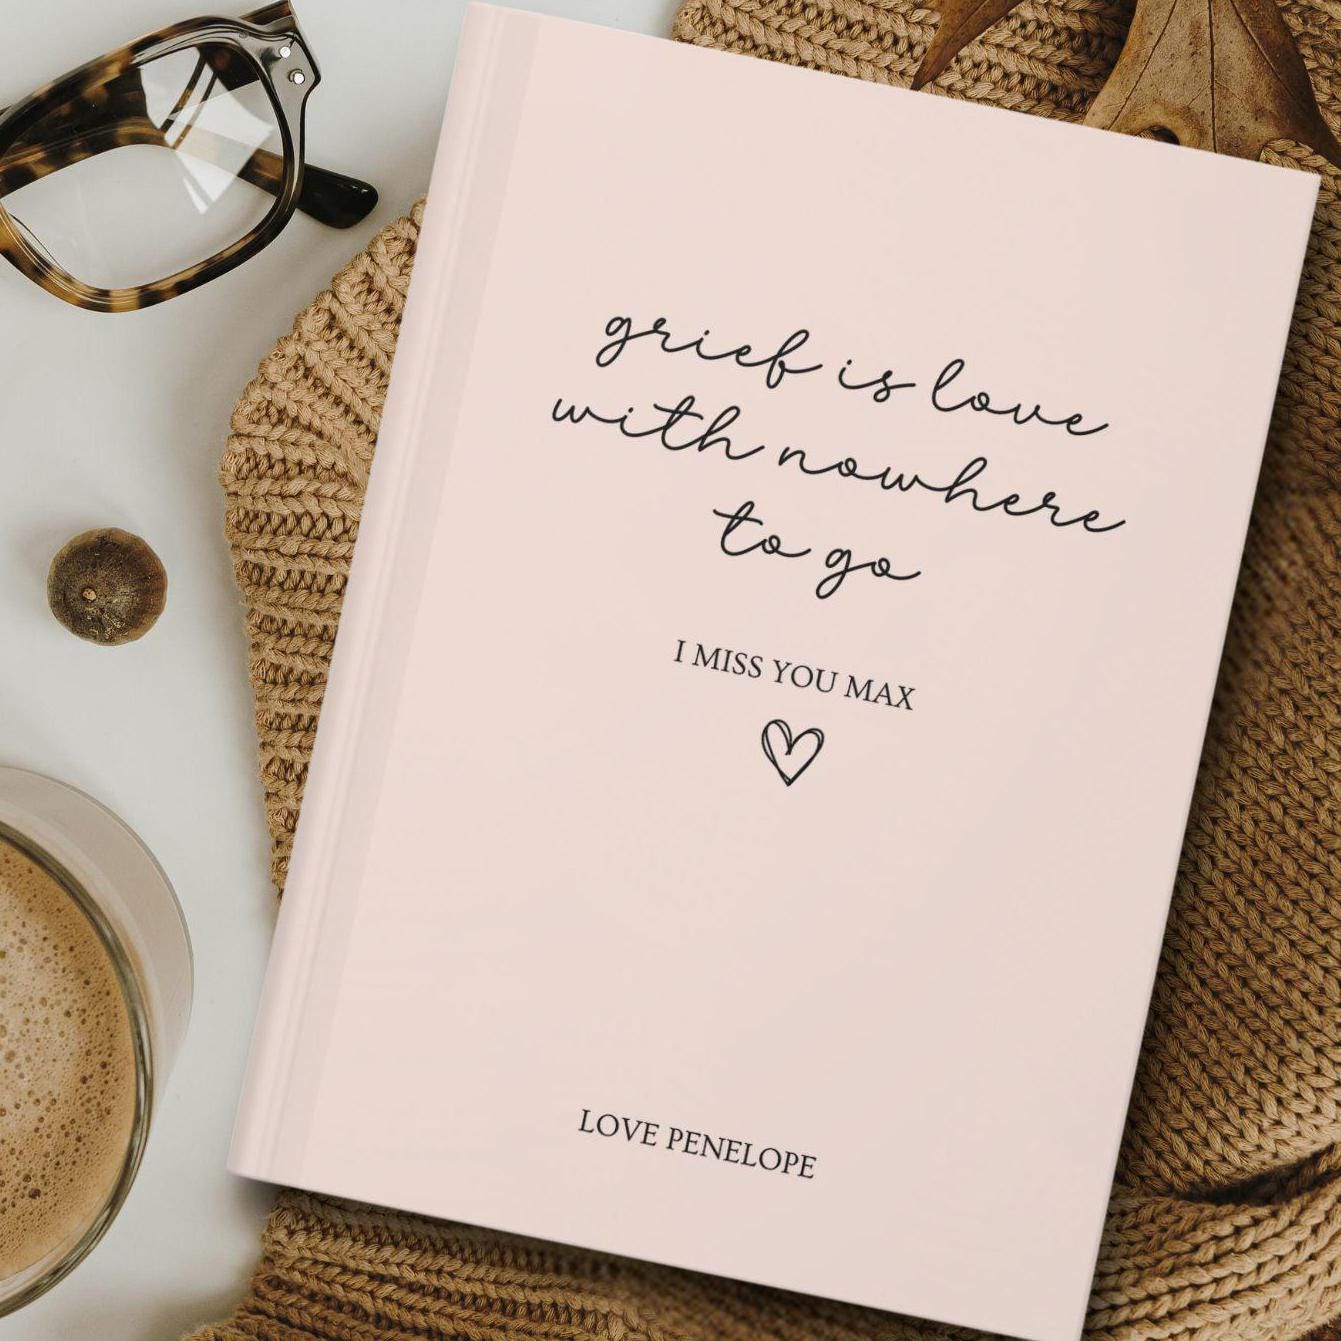 grief is love
with nowhere
to go
I MISS YOU MAX
LOVE PENELOPE